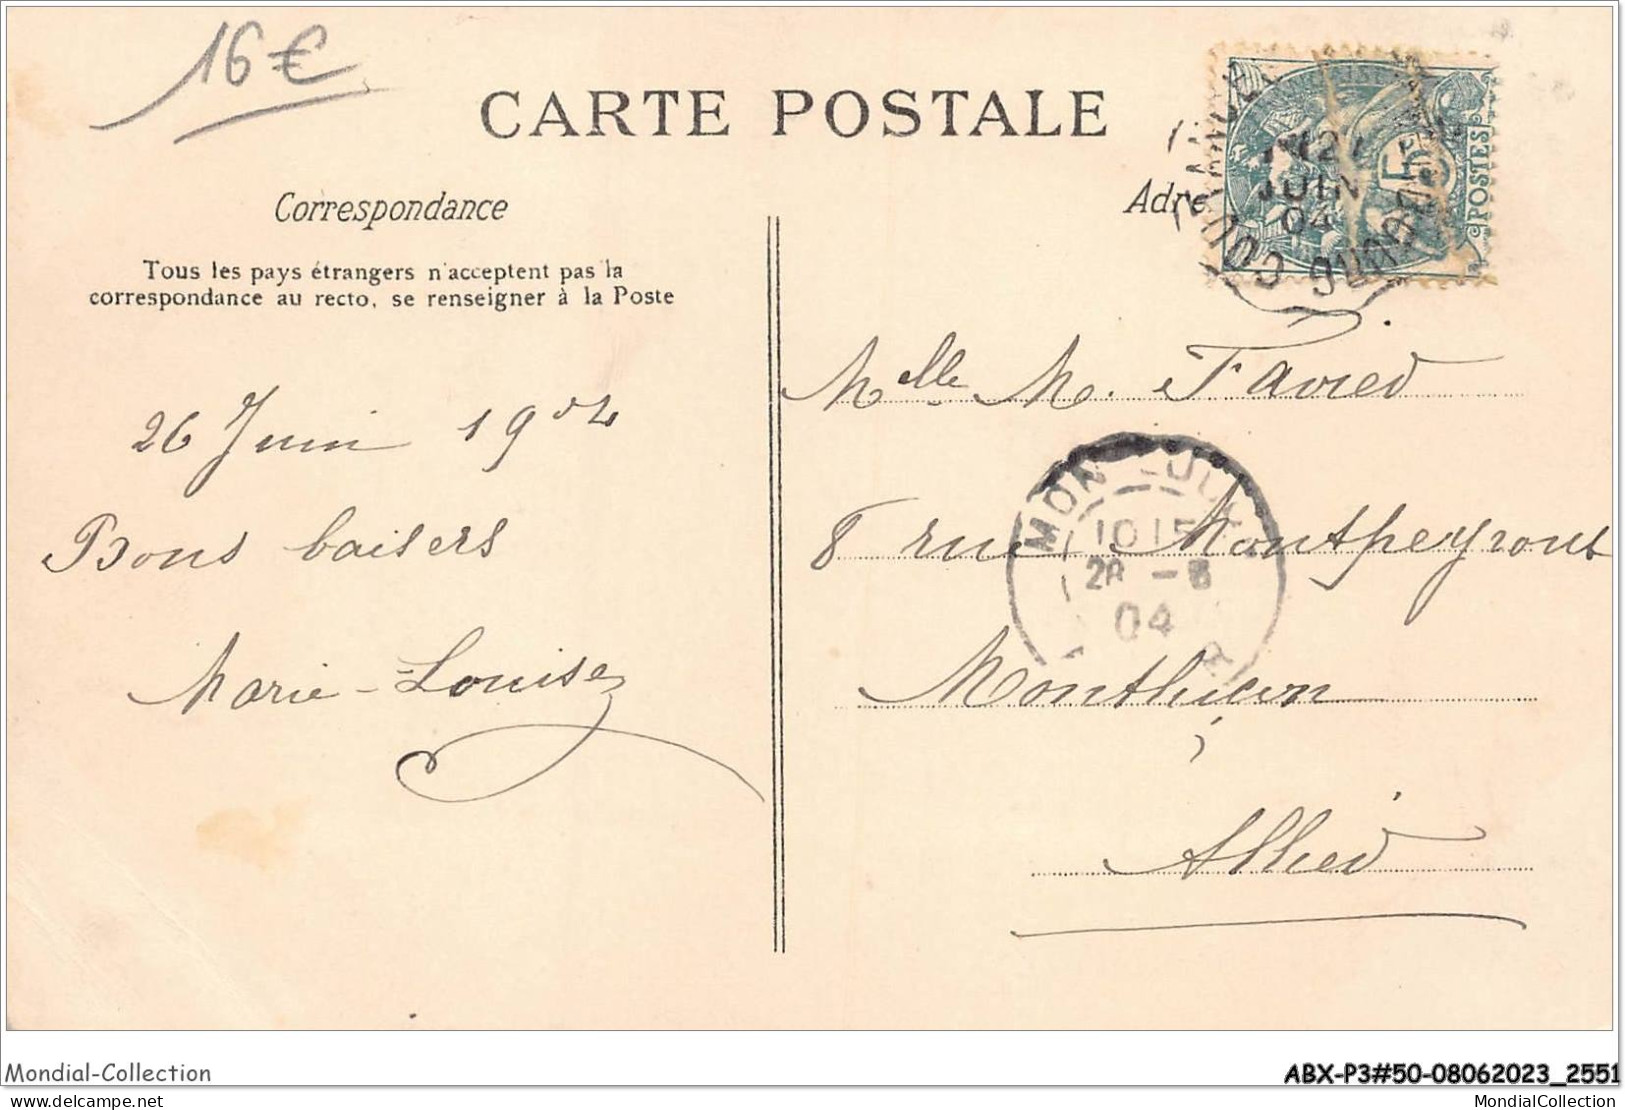 16€
CARTE POSTALE
Correspondance
Adre
Tous les pays étrangers n'acceptent pas la
correspondance au recto, se renseigner à la Poste
5
POSTES
JUIN
04
26 Juin 1904
Bons baisers
Marie-Louise
Mlle M. Favier
8 rue Montpeyroux
Montluçon
Allier
10 15
28 - 6
04
Mondial-Collection
ABX-P3#50-08062023_2551
delcampe.net
MondialCollection